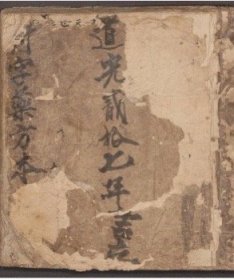 道光貳拾乙年
字藥方本